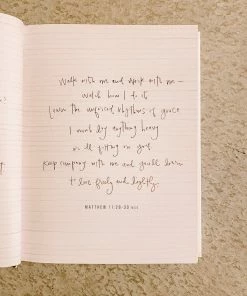 Walk with me and work with me —
watch how I do it.
Learn the unforced rhythms of grace
I won't lay anything heavy
or ill fitting on you
Keep company with me and you'll learn
to live freely and lightly.
MATTHEW 11:28-30